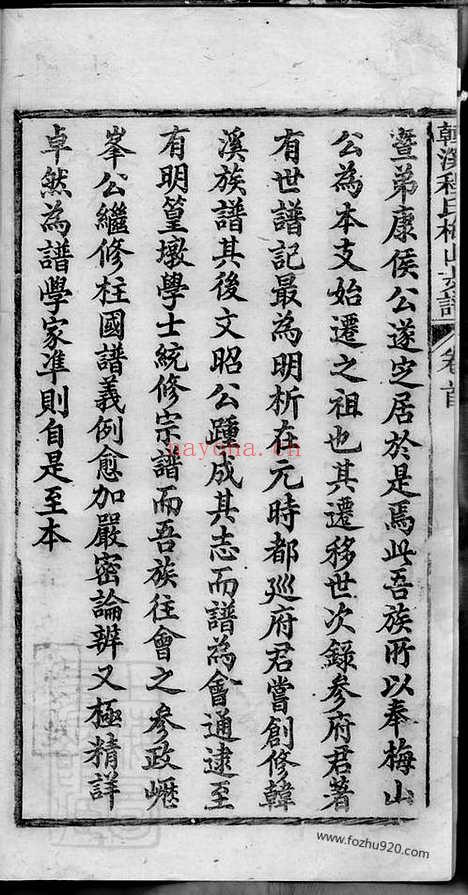 韓溪程氏梅山支譜 卷首
暨弟康侯公遂定居於是焉此吾族所以奉梅山
公為本支始遷之祖也其遷移世次錄參府君著
有世譜記最為明析在元時都巡府君嘗創修韓
溪族譜其後文昭公踵成其志而譜為會通逮至
有明篁墩學士統修宗譜而吾族往會之參政嶧
峯公繼修柱國譜義例愈加嚴密論辨又極精詳
卓然為譜學家準則自是至本
nayona.cn
www.fozhu920.com